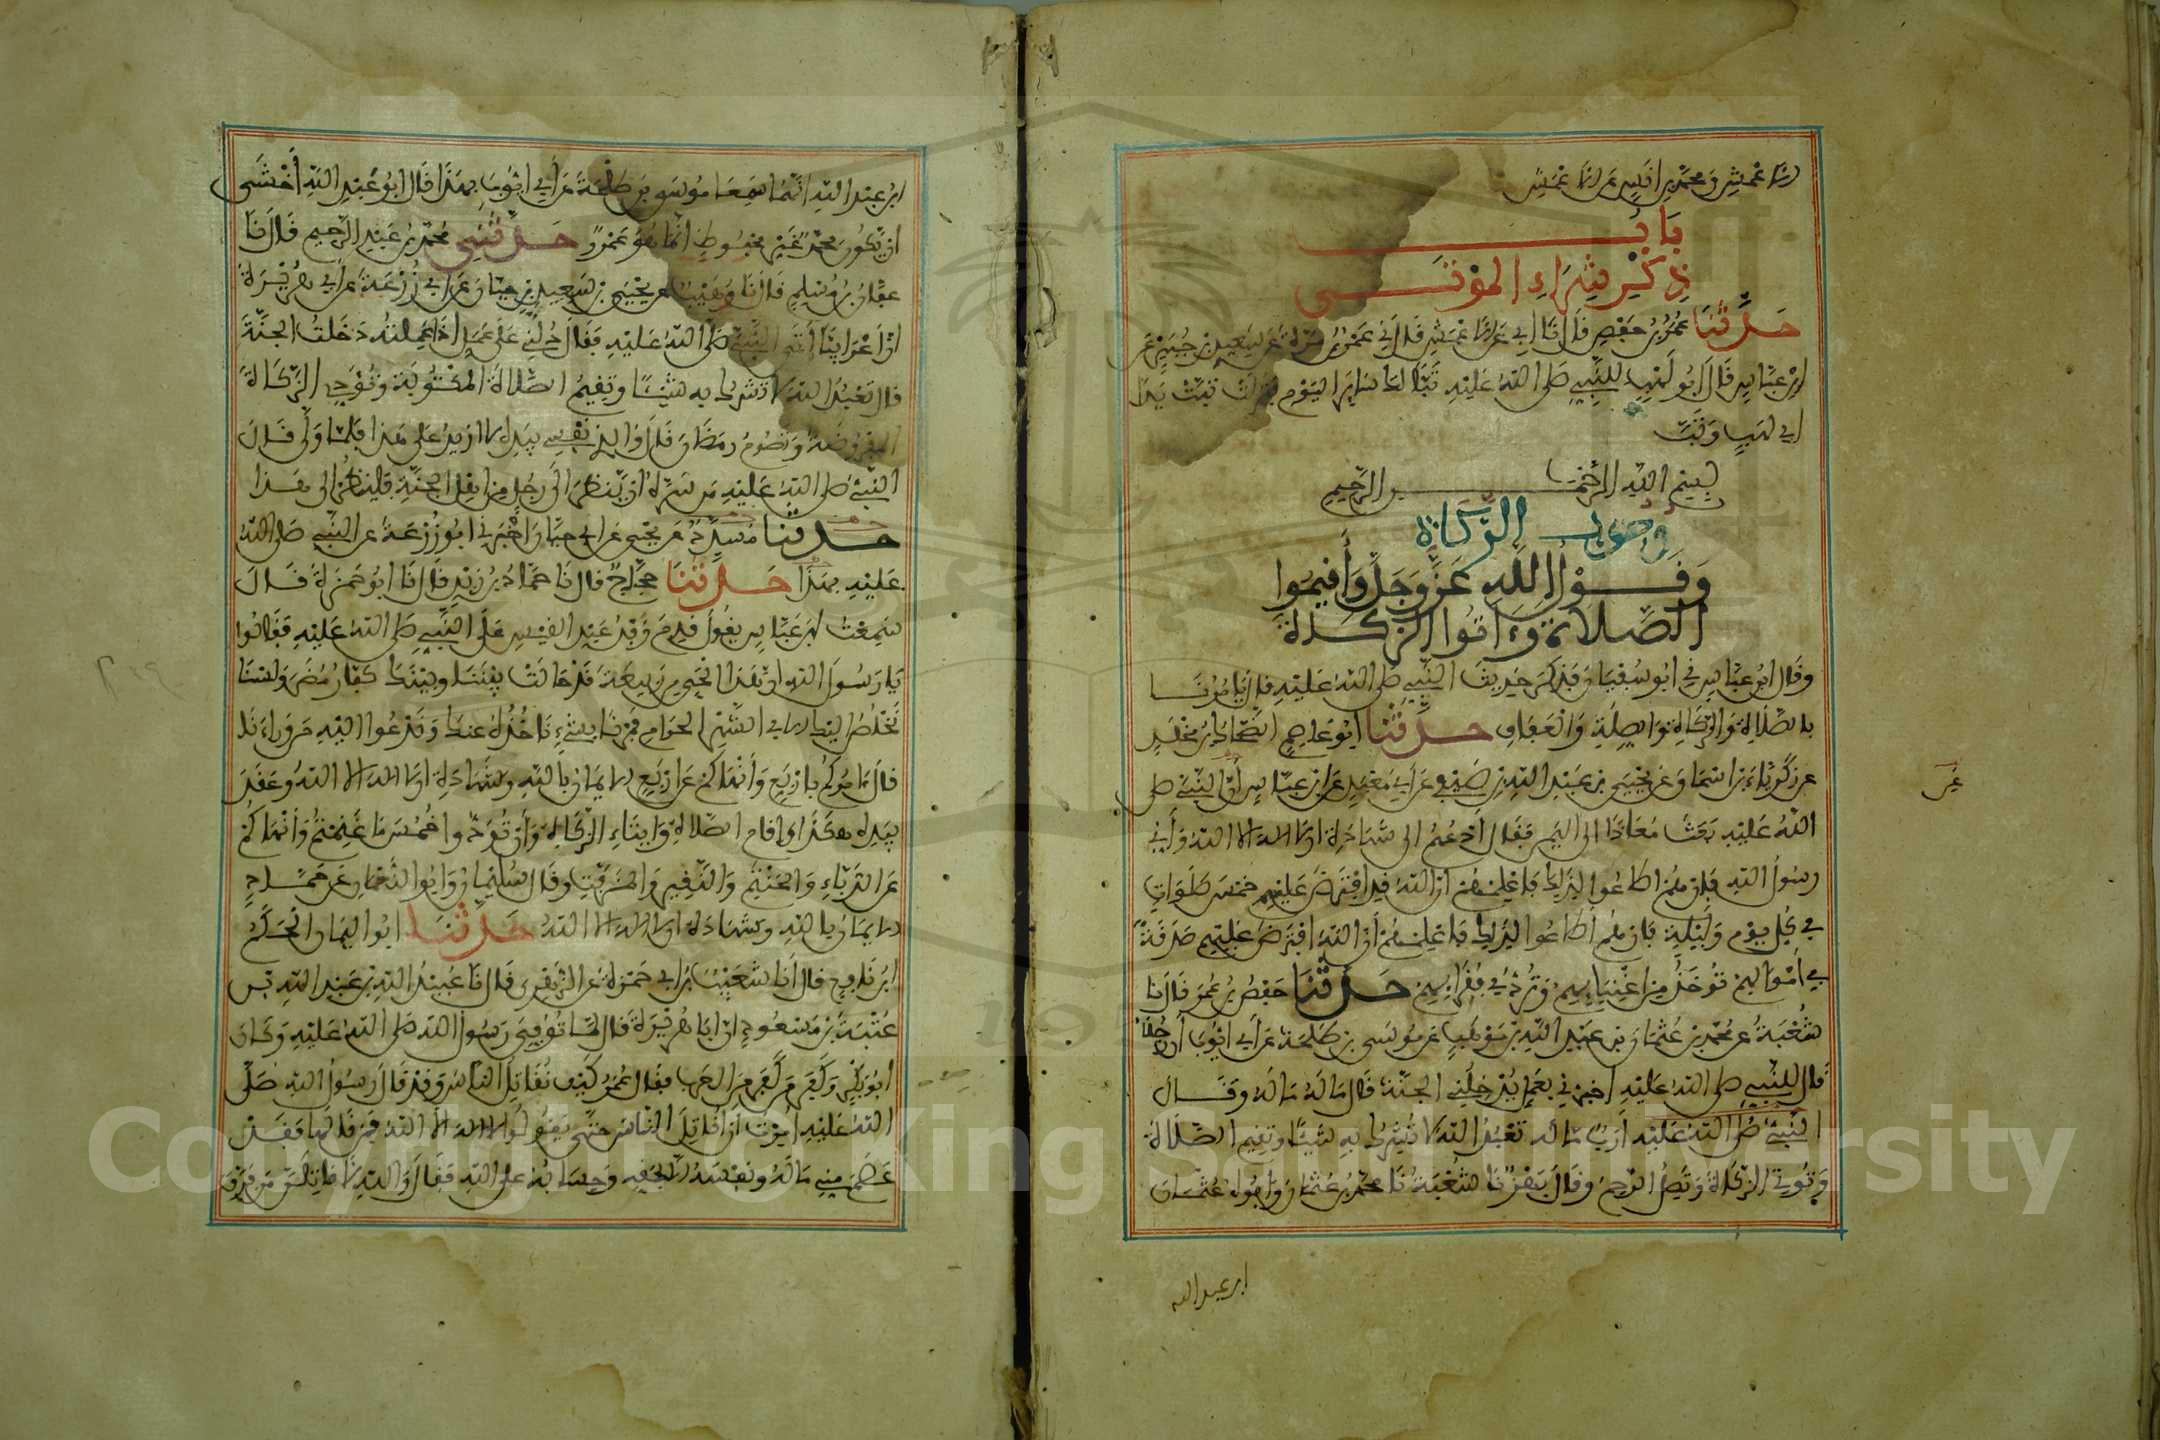 الاعمش ومحمد بن انس عن الاعمش
باب
ذكر شرار الموتى
حدثنا عمر بن حفص قال نا ابي عن الاعمش قال ني عمرو بن مرة عن سعيد بن جبير عن
ابن عباس قال قال ابو لهب للنبي صلى الله عليه تبا لك سائر اليوم فنزلت تبت يدا
ابي لهب وتب
بسم الله الرحمن الرحيم
وجوب الزكاة
وقول الله عز وجل وأقيموا
الصلاة وءاتوا الزكاة
وقال ابن عباس ني ابو سفيان فذكر حديث النبي صلى الله عليه قال يامرنا
بالصلاة والزكاة والصلة والعفاف حدثنا ابو عاصم الضحاك بن مخلد
عن زكرياء بن اسحاق عن يحيى بن عبد الله بن صيفي عن أبي معبد عن ابن عباس أن النبي صلى
الله عليه بعث معاذا الى اليمن فقال أدعهم الى شهادة ان لا اله الا الله وأني
رسول الله فإن هم اطاعوا لذلك فاعلمهم ان الله قد افترض عليهم خمس صلوات
في كل يوم وليلة فان هم أطاعوا لذلك فاعلمهم أن الله افترض عليهم صدقة
في أموالهم توخذ من اغنيايهم وترد في فقرايهم حدثنا حفص بن عمر قال نا
شعبة عن محمد بن عثمان بن عبد الله بن موهب عن موسى بن طلحة عن أبي ايوب أن رجلا
قال للنبي صلى الله عليه اخبرني بعمل يدخلني الجنة قال ماله ماله وقال
النبي صلى الله عليه أرب ماله تعبد الله لا تشرك به شيئا وتقيم الصلاة
وتوتي الزكاة وتصل الرحم وقال بهز نا شعبة نا محمد بن عثمان وابوه عثمان
ابن عبد الله
ابن عبد الله انهما سمعا موسى بن طلحة عن أبي ايوب بهذا قال ابو عبد الله أخشى
ان يكون محمد غير محفوظ انما هو عمرو حدثني محمد بن عبد الرحيم قال نا
عفان بن مسلم قال نا وهيب عن يحيى بن سعيد بن حيان عن ابي زرعة عن ابي هريرة
ان أعرابيا أتى النبي صلى الله عليه فقال دلني على عمل اذا عملته دخلت الجنة
قال تعبد الله لا تشرك به شيئا وتقيم الصلاة المكتوبة وتودي الزكاة
المفروضة وتصوم رمضان قال والذي نفسي بيده لا ازيد على هذا فلما ولى قال
النبي صلى الله عليه من سره ان ينظر الى رجل من اهل الجنة فلينظر الى هذا
حدثنا مسدد عن يحيى عن ابي حيان اخبرني ابو زرعة عن النبي صلى الله
عليه بهذا حدثنا حجاج قال نا حماد بن زيد قال نا ابو جمرة قال
سمعت ابن عباس يقول قدم وفد عبد القيس على النبي صلى الله عليه فقالوا
يا رسول الله ان هذا الحي من ربيعة قد حالت بيننا وبينك كفار مضر ولسنا
نخلص اليك الا في الشهر الحرام فمرنا بشيء ناخذه عنك وندعوا اليه من وراءنا
قال امركم باربع وأنهاكم عن اربع الايمان بالله وشهادة ان لا اله الا الله وعقد
بيده هكذا واقام الصلاة وايتاء الزكاة وأن تودوا خمس ما غنمتم وأنهاكم
عن الدباء والحنتم والنقير والمزفت وقال سليمان وابو النعمان عن حماد
الايمان بالله وشهادة ان لا اله الا الله حدثنا ابو اليمان الحكم
ابن نافع قال أنا شعيب بن ابي حمزة عن الزهري قال نا عبيد الله بن عبد الله بن
عتبة بن مسعود ان ابا هريرة قال لما توفي رسول الله صلى الله عليه وكان
ابو بكر وكفر من كفر من العرب فقال عمر كيف تقاتل الناس وقد قال رسول الله صلى
الله عليه أمرت ان أقاتل الناس حتى يقولوا لا اله الا الله فمن قالها فقد
عصم مني ماله ونفسه الا بحقه وحسابه على الله فقال والله لاقاتلن من فرق